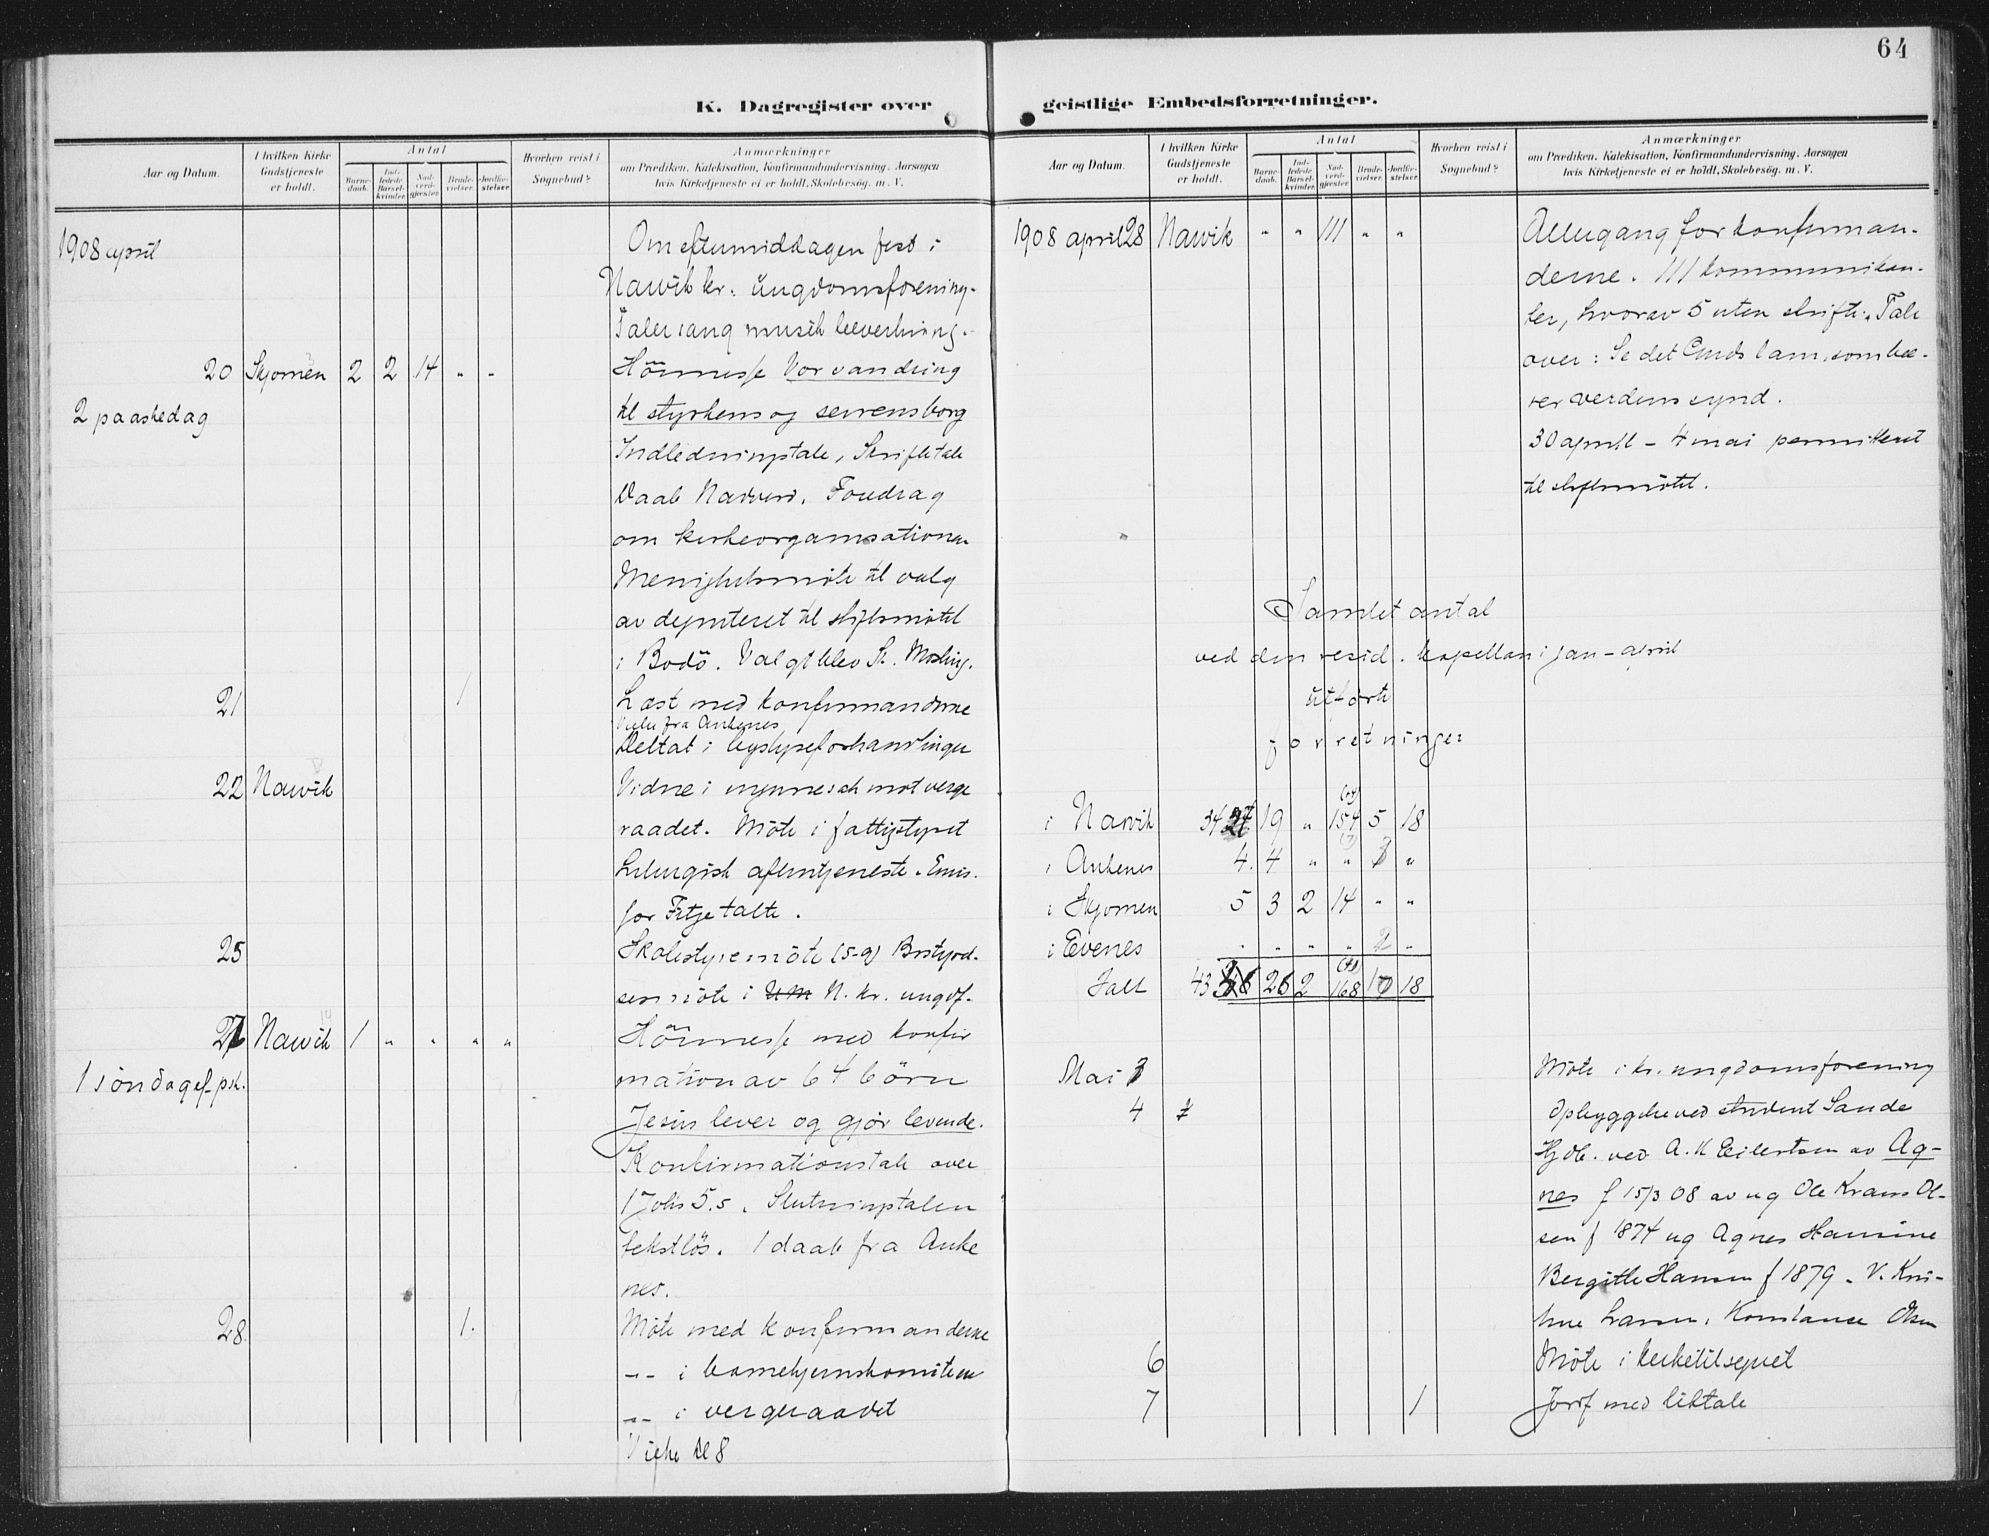 64
K. Dagregister over geistlige Embedsforretninger.
Aar og Datum.
I hvilken Kirke Gudstjeneste er holdt.
Antal
Barnedaab.
Indledede Barselkvinder.
Nadverdgjester.
Brudevielser.
Jordfæstelser.
Hvorhen reist i Sognebud?
Anmærkninger
om Prædiken, Katekisation, Konfirmandundervisning, Aarsagen
hvis Kirketjeneste ei er holdt, Skolebesøg. m. V.
1908 april Om eftermiddagen fest i
Narvik kr. ungdomsforening.
Taler sang musik bevertning.
20 Skjomen 2 2 14 " " Höimesse Vor vandring
2 paaskedag til styrkens og seirens borg
Indledningstale, Skriftetale
Daab Nadverd. Foredrag
om kirkeorganisationen
Menighetsmöte til valg
av deputeret til stiftsmötet
i Bodö. Valgt blev Kr. Mosling.
21 1 Læst med konfirmanderne
Vielse fra Ankenes
Deltat i bystyreforhandlinger
22 Narvik Vidne i mot verge
raadet. Möte i fattigstyret
Liturgisk aftentjeneste. Emis.
for Fitje talte.
25 Skolestyremöte (5-9) Bestyrel-
sesmöte i N. kr. ungdf.
26 Narvik 1 " " " " Höimesse med konfir
1 söndag ef. psk. mation av 64 börn
Jesus lever og gjör levende.
Konfirmationstale over
1 Johs 5.5. Slutningstalen
tekstlös. 1 daab fra Anke
nes.
28 1. Möte med konfirmanderne
-"- i barnehjemskomiteen
-"- i vergeraadet
8
Aar og Datum.
I hvilken Kirke Gudstjeneste er holdt.
Antal
Barnedaab.
Indledede Barselkvinder.
Nadverdgjester.
Brudevielser.
Jordfæstelser.
Hvorhen reist i Sognebud?
Anmærkninger
om Prædiken, Katekisation, Konfirmandundervisning, Aarsagen
hvis Kirketjeneste ei er holdt, Skolebesøg. m. V.
1908 april 28 Narvik " " 111 " " Altergang for konfirman-
derne. 111 kommunikan-
ter, hvorav 5 uten skrifte. Tale
over: Se det Guds lam, som bæ-
rer verdens synd.
30 april - 4 mai permitteret
til stiftsmötet.
Samlet antal
ved den resid. kapellan i jan - april
utförte
forretninger
i Narvik 34 19 " 154 5 18
i Ankenes 4. 4 " " 3 "
i Skjomen 5 3 2 14 " "
i Evenes " " " " 2 "
Ialt 43 26 2 168 10 18
Mai 3 Möte i kr. ungdomsforening
4 Opbyggelse ved student Sande
Hjdb. ved A. K Eilertsen av Ag-
nes f 15/3 08 av ug Ole Kraus Ol-
sen f 1874 ug Agnes Hansine
Bergitte Hansen f 1879. V. Kris-
tine Larsen, Konstanse Olsen
6 Möte i kirketilsynet
7 1 Jordf med liktale